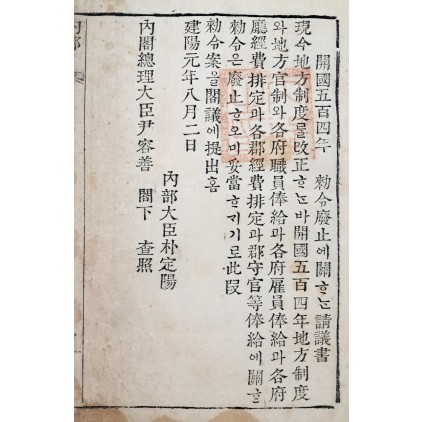 開國五百四年 勅令廢止에關ᄒᆞᄂᆞᆫ請議書
現今地方制度를改正ᄒᆞᄂᆞᆫ바開國五百四年地方制度
와地方官制와各府職員俸給과各府雇員俸給과各府
廳經費排定과各郡經費排定과郡守官等俸給에關ᄒᆞᆫ
勅令은廢止ᄒᆞ오미妥當ᄒᆞᆫ지기로此段
勅令案을閣議에提出홈
建陽元年八月二日
內部大臣朴定陽
內閣總理大臣尹容善 閣下 査照